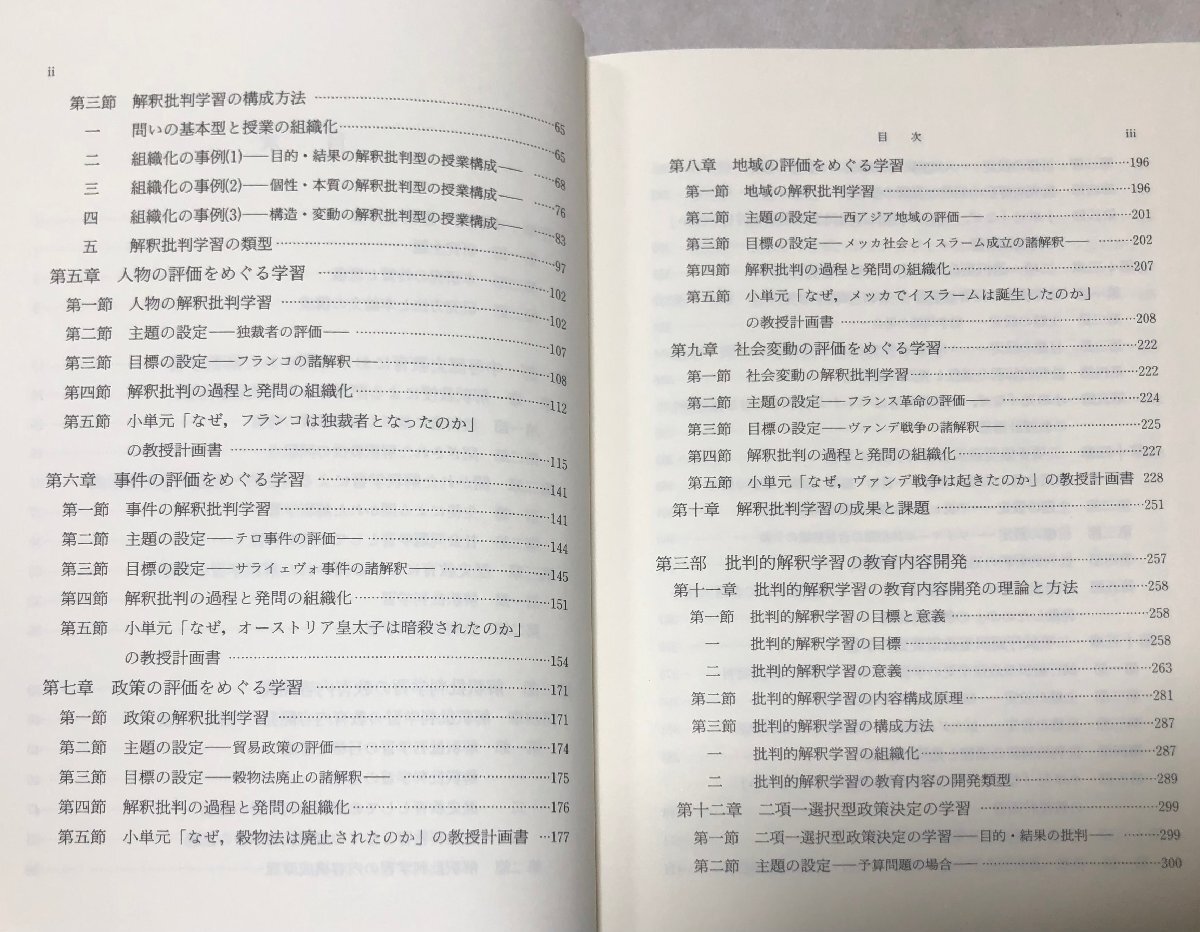 ii
第三節 解釈批判学習の構成方法 ……65
一 問いの基本型と授業の組織化……65
二 組織化の事例(1)──目的・結果の解釈批判型の授業構成── ……68
三 組織化の事例(2)──個性・本質の解釈批判型の授業構成── ……76
四 組織化の事例(3)──構造・変動の解釈批判型の授業構成── ……83
五 解釈批判学習の類型……97
第五章 人物の評価をめぐる学習 ……102
第一節 人物の解釈批判学習 ……102
第二節 主題の設定──独裁者の評価── ……107
第三節 目標の設定──フランコの諸解釈── ……108
第四節 解釈批判の過程と発問の組織化……112
第五節 小単元「なぜ，フランコは独裁者となったのか」
の教授計画書 ……115
第六章 事件の評価をめぐる学習 ……141
第一節 事件の解釈批判学習 ……141
第二節 主題の設定──テロ事件の評価── ……144
第三節 目標の設定──サライェヴォ事件の諸解釈── ……145
第四節 解釈批判の過程と発問の組織化……151
第五節 小単元「なぜ，オーストリア皇太子は暗殺されたのか」
の教授計画書 ……154
第七章 政策の評価をめぐる学習 ……171
第一節 政策の解釈批判学習 ……171
第二節 主題の設定──貿易政策の評価── ……174
第三節 目標の設定──穀物法廃止の諸解釈── ……175
第四節 解釈批判の過程と発問の組織化……176
第五節 小単元「なぜ，穀物法は廃止されたのか」の教授計画書 …177
目 次 iii
第八章 地域の評価をめぐる学習 ……196
第一節 地域の解釈批判学習 ……196
第二節 主題の設定──西アジア地域の評価── ……201
第三節 目標の設定──メッカ社会とイスラーム成立の諸解釈── ……202
第四節 解釈批判の過程と発問の組織化……207
第五節 小単元「なぜ，メッカでイスラームは誕生したのか」
の教授計画書 ……208
第九章 社会変動の評価をめぐる学習……222
第一節 社会変動の解釈批判学習 ……222
第二節 主題の設定──フランス革命の評価── ……224
第三節 目標の設定──ヴァンデ戦争の諸解釈── ……225
第四節 解釈批判の過程と発問の組織化……227
第五節 小単元「なぜ，ヴァンデ戦争は起きたのか」の教授計画書 228
第十章 解釈批判学習の成果と課題 ……251
第三部 批判的解釈学習の教育内容開発 ……257
第十一章 批判的解釈学習の教育内容開発の理論と方法 ……258
第一節 批判的解釈学習の目標と意義……258
一 批判的解釈学習の目標……258
二 批判的解釈学習の意義……263
第二節 批判的解釈学習の内容構成原理……281
第三節 批判的解釈学習の構成方法……287
一 批判的解釈学習の組織化……287
二 批判的解釈学習の教育内容の開発類型……289
第十二章 二項一選択型政策決定の学習 ……299
第一節 二項一選択型政策決定の学習──目的・結果の批判── ……299
第二節 主題の設定──予算問題の場合── ……300